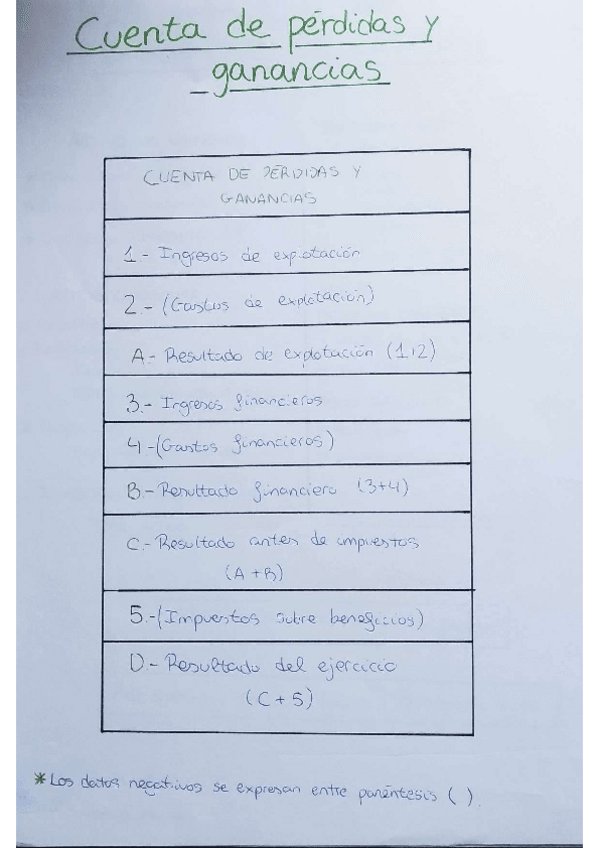 Cuenta de pérdidas y
ganancias
CUENTA DE PÉRDIDAS Y
GANANCIAS
1.- Ingresos de explotación
2.- (Gastos de explotación)
A.- Resultado de explotación (1,2)
3.- Ingresos financieros
4.-(Gastos financieros)
B.- Resultado financiero (3+4)
C.- Resultado antes de impuestos
(A+B)
5.-(Impuestos sobre beneficios)
D.- Resultado del ejercicio
(C+5)
*Los datos negativos se expresan entre paréntesis ( ).